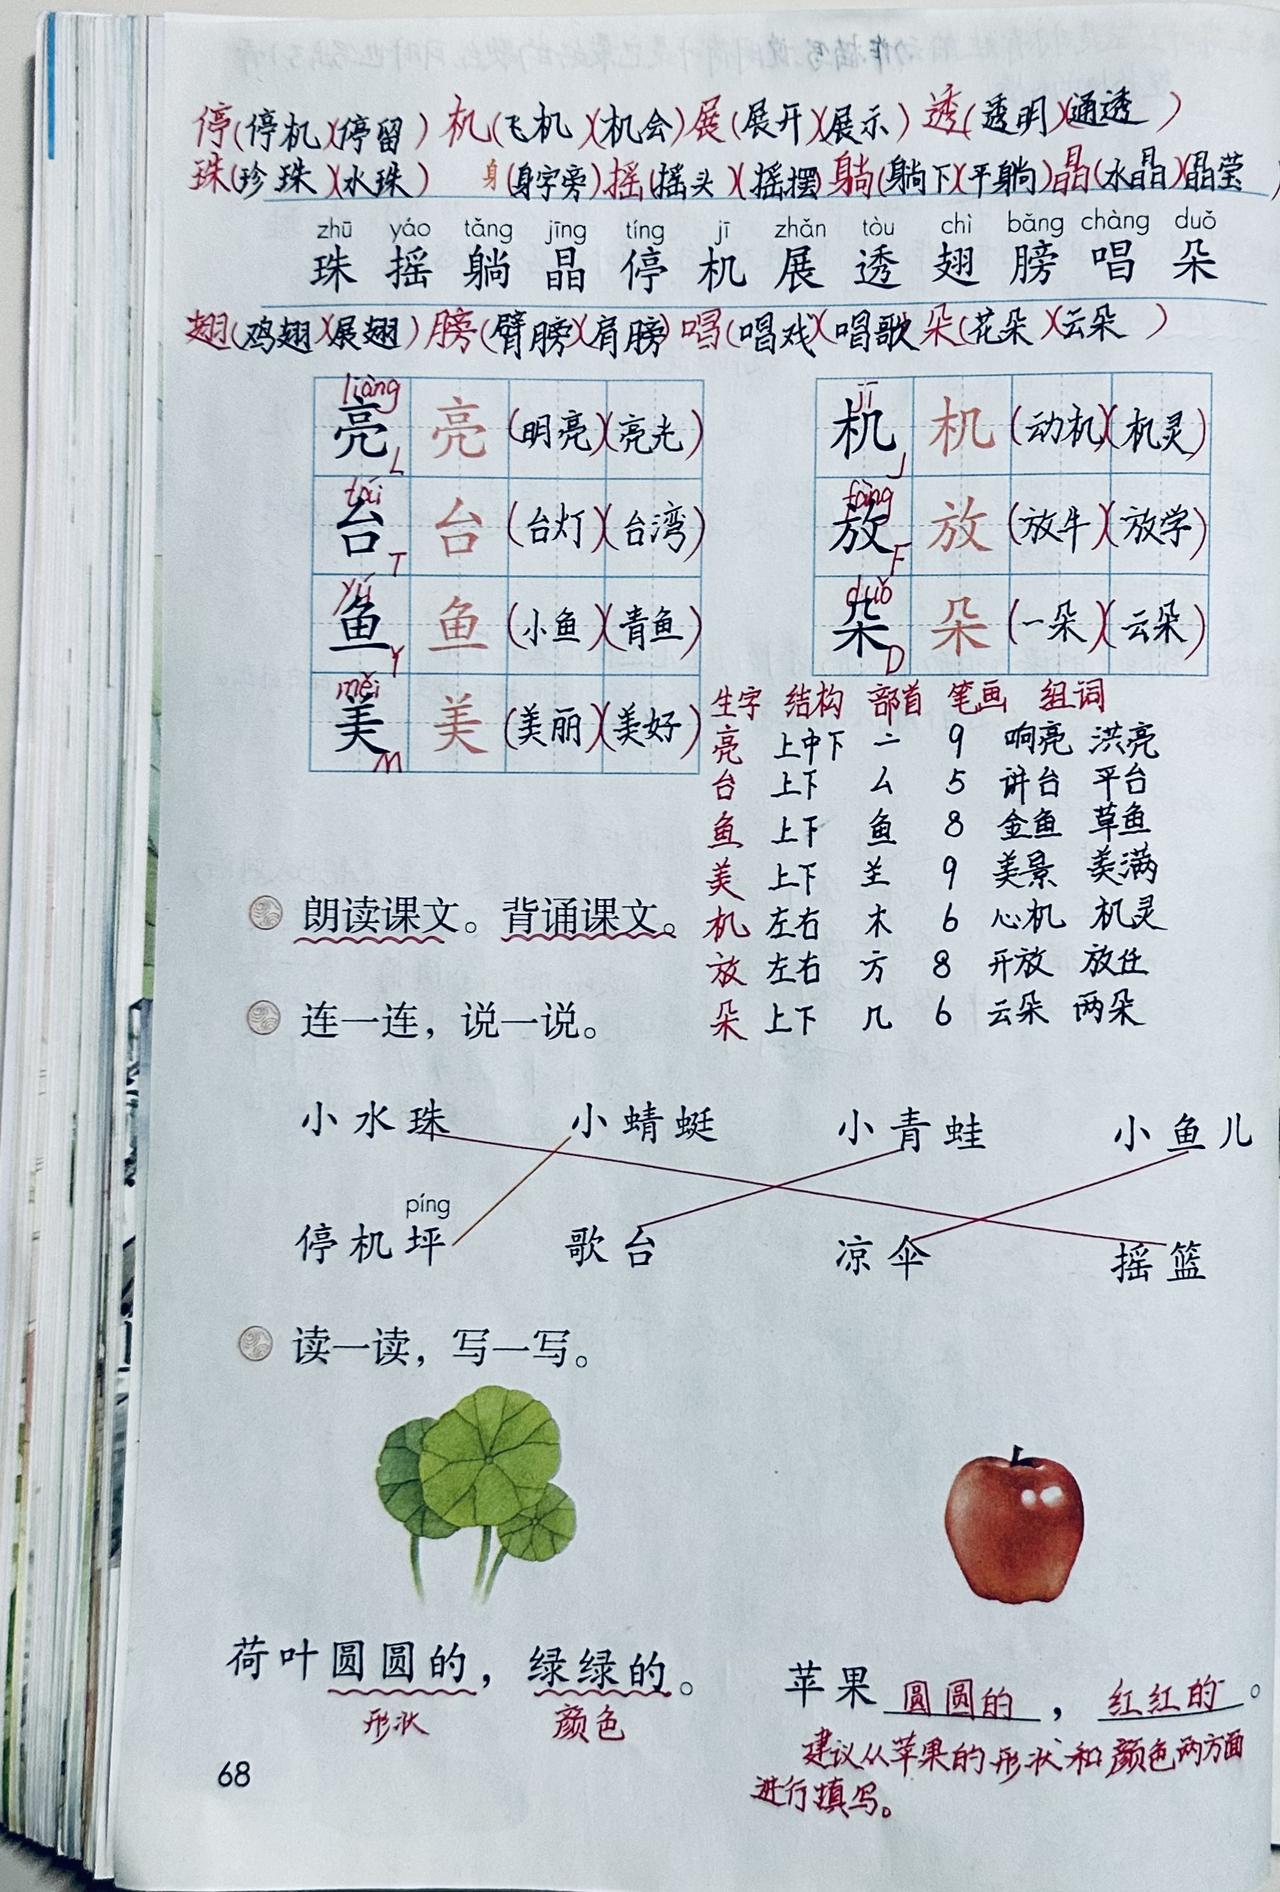 停(停机)(停留) 机(飞机)(机会) 展(展开)(展示) 透(透明)(通透)
珠(珍珠)(水珠) 身(身字旁) 摇(摇头)(摇摆) 躺(躺下)(平躺) 晶(水晶)(晶莹)
zhū yáo tǎng jīng tíng jī zhǎn tòu chì bǎng chàng duǒ
珠 摇 躺 晶 停 机 展 透 翅 膀 唱 朵
翅(鸡翅)(展翅) 膀(臂膀)(肩膀) 唱(唱戏)(唱歌) 朵(花朵)(云朵)
liàng
亮 L 亮 (明亮)(亮光)
tái
台 T 台 (台灯)(台湾)
yú
鱼 Y 鱼 (小鱼)(青鱼)
měi
美 M 美 (美丽)(美好)
jī
机 J 机 (动机)(机灵)
fàng
放 F 放 (放牛)(放学)
duǒ
朵 D 朵 (一朵)(云朵)
生字 结构 部首 笔画 组词
亮 上中下 亠 9 响亮 洪亮
台 上下 厶 5 讲台 平台
鱼 上下 鱼 8 金鱼 草鱼
美 上下 𦍌 9 美景 美满
机 左右 木 6 心机 机灵
放 左右 方 8 开放 放任
朵 上下 几 6 云朵 两朵
朗读课文。背诵课文。
连一连，说一说。
小水珠 小蜻蜓 小青蛙 小鱼儿
píng
停机坪 歌台 凉伞 摇篮
读一读，写一写。
荷叶圆圆的，绿绿的。
形状 颜色
苹果 圆圆的，红红的。
建议从苹果的形状和颜色两方面
进行填写。
68